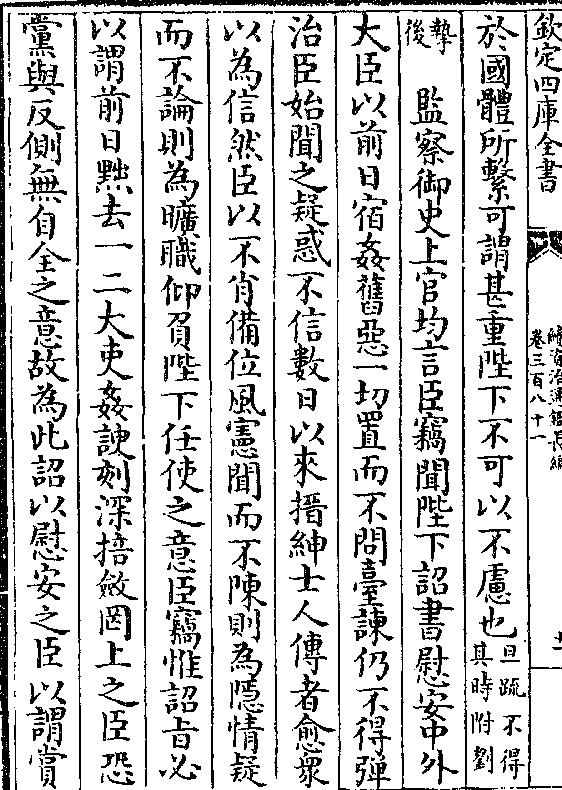 欽定四庫全書
續資治通鑑長編
卷三百八十一
十一
於國體所繫可謂甚重陛下不可以不慮也旦疏不得其時附劉
摯後　監察御史上官均言臣竊聞陛下詔書慰安中外
大臣以前日宿姦舊惡一切置而不問臺諫仍不得彈
治臣始聞之疑惑不信數日以來搢紳士人傳者愈衆
以為信然臣以不肖備位風憲聞而不陳則為隱情疑
而不論則為曠職仰負陛下任使之意臣竊惟詔旨必
以謂前日黜去一二大吏姦諛刻深掊斂罔上之臣恐
黨與反側無自全之意故為此詔以慰安之臣以謂賞